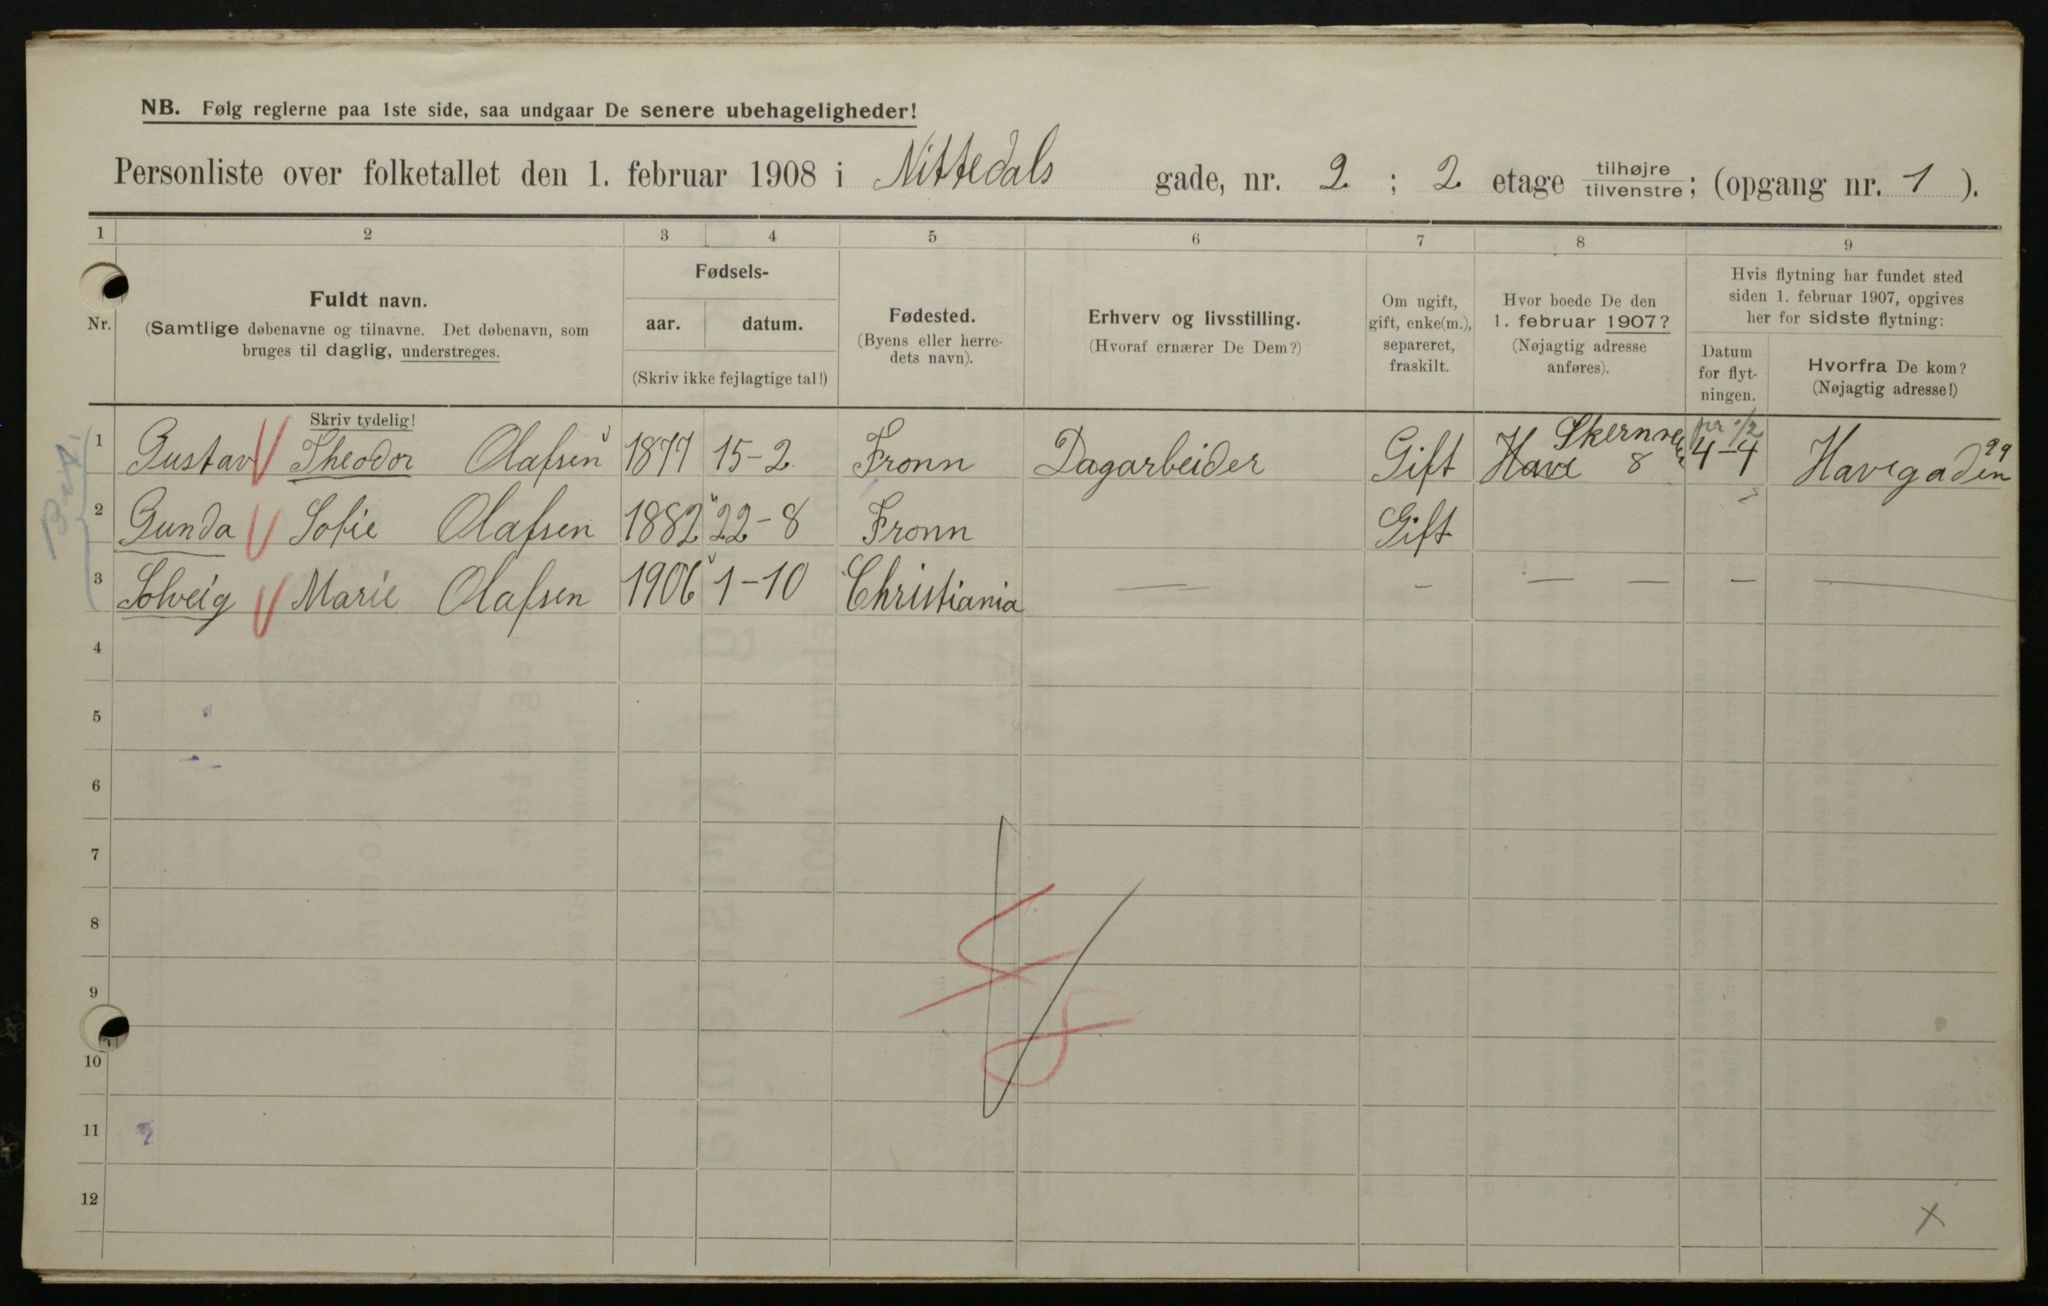 NB. Følg reglerne paa 1ste side, saa undgaar De senere ubehageligheder!
Personliste over folketallet den 1. februar 1908 i Nittedals gade, nr. 2 ; 2 etage tilhøjre tilvenstre; (opgang nr. 1 ).
1 2 3 4 5 6 7 8 9
Nr.
Fuldt navn.
(Samtlige døbenavne og tilnavne. Det døbenavn, som
bruges til daglig, understreges.
Skriv tydelig!
Fødsels-
aar. datum.
(Skriv ikke fejlagtige tal!)
Fødested.
(Byens eller herre-
dets navn).
Erhverv og livsstilling.
(Hvoraf ernærer De Dem?)
Om ugift,
gift, enke(m.),
separeret,
fraskilt.
Hvor boede De den
1. februar 1907?
(Nøjagtig adresse
anføres).
Hvis flytning har fundet sted
siden 1. februar 1907, opgives
her for sidste flytning:
Datum
for flyt-
ningen.
Hvorfra De kom?
(Nøjagtig adresse!)
1 Gustav Theodor Olafsen 1877 15-2 Fronn Dagarbeider Gift Have 8 4-4 Havegaden 29
2 Gunda Sofie Olafsen 1882 22-8 Fronn Gift
3 Solveig Marie Olafsen 1906 1-10 Christiania — — — — — —
4
5
6
7
8
9
10
11
12
X